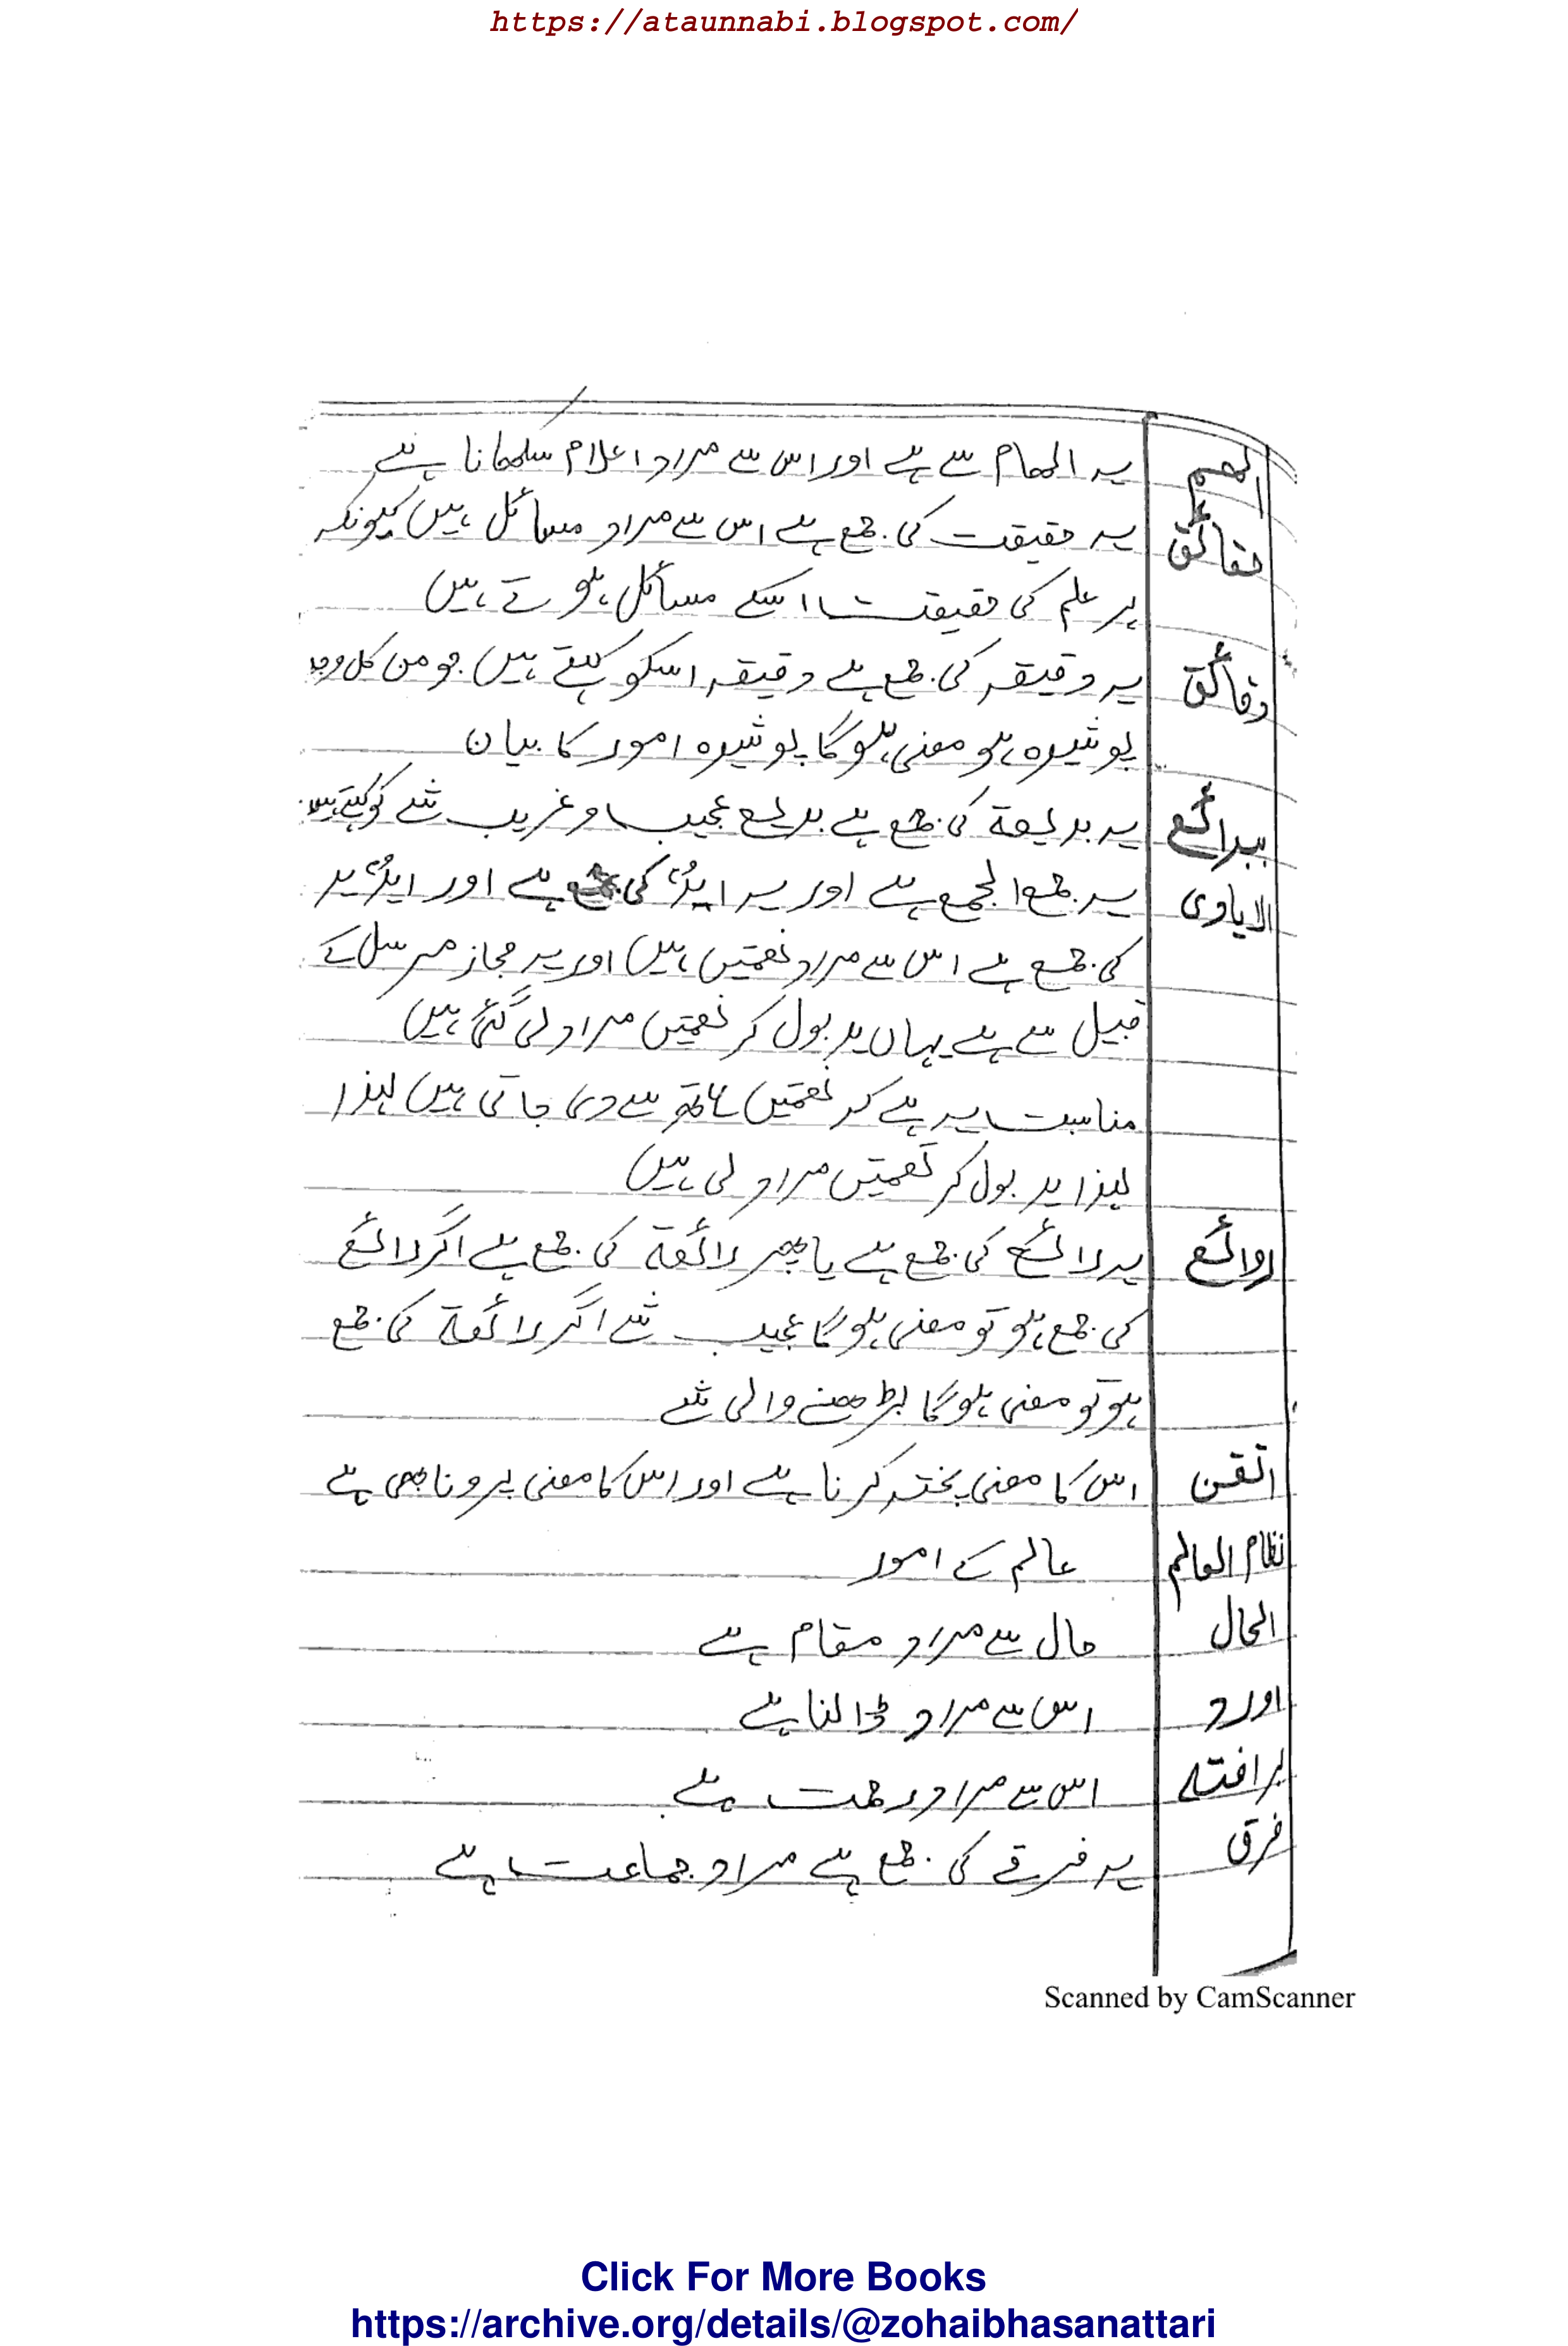 https://ataunnabi.blogspot.com/
الھم یہ الھام سے ہے اور اس سے مراد اعلام سکھانا ہے
حقائق یہ حقیقت کی جمع ہے اس سے مراد مسائل ہیں کیونکہ
ہر علم کی حقیقت اسکے مسائل ہوتے ہیں
دقائق یہ دقیقہ کی جمع ہے دقیقہ اسکو کہتے ہیں جو من کل وجہ
پوشیدہ ہو معنی ہوگا پوشیدہ امور کا بیان
بدائع یہ بدیعة کی جمع ہے بدیع عجیب و غریب شے کو کہتے ہیں
الایادی یہ جمع الجمع ہے اور یہ ایدٌ کی جمع ہے اور ایدٌ ید
کی جمع ہے اس سے مراد نعمتیں ہیں اور یہ مجاز مرسل کے
قبیل سے ہے یہاں ید بول کر نعمتیں مراد لی گئی ہیں
مناسبت یہ ہے کہ نعمتیں ہاتھ سے دی جاتی ہیں لہذا
لہذا ید بول کر نعمتیں مراد لی ہیں
روائع یہ رائع کی جمع ہے یا پھر رائعة کی جمع ہے اگر رائع
کی جمع ہو تو معنی ہوگا عجیب شے اگر رائعة کی جمع
ہو تو معنی ہوگا بڑھنے والی شے
اتقن اس کا معنی پختہ کرنا ہے اور اس کا معنی پرونا بھی ہے
نظام العالم عالم کے امور
الحال حال سے مراد مقام ہے
اورد اس سے مراد ڈالنا ہے
برافتہ اس سے مراد رحمت ہے
فرق یہ فرقے کی جمع ہے مراد جماعت ہے
Scanned by CamScanner
Click For More Books
https://archive.org/details/@zohaibhasanattari